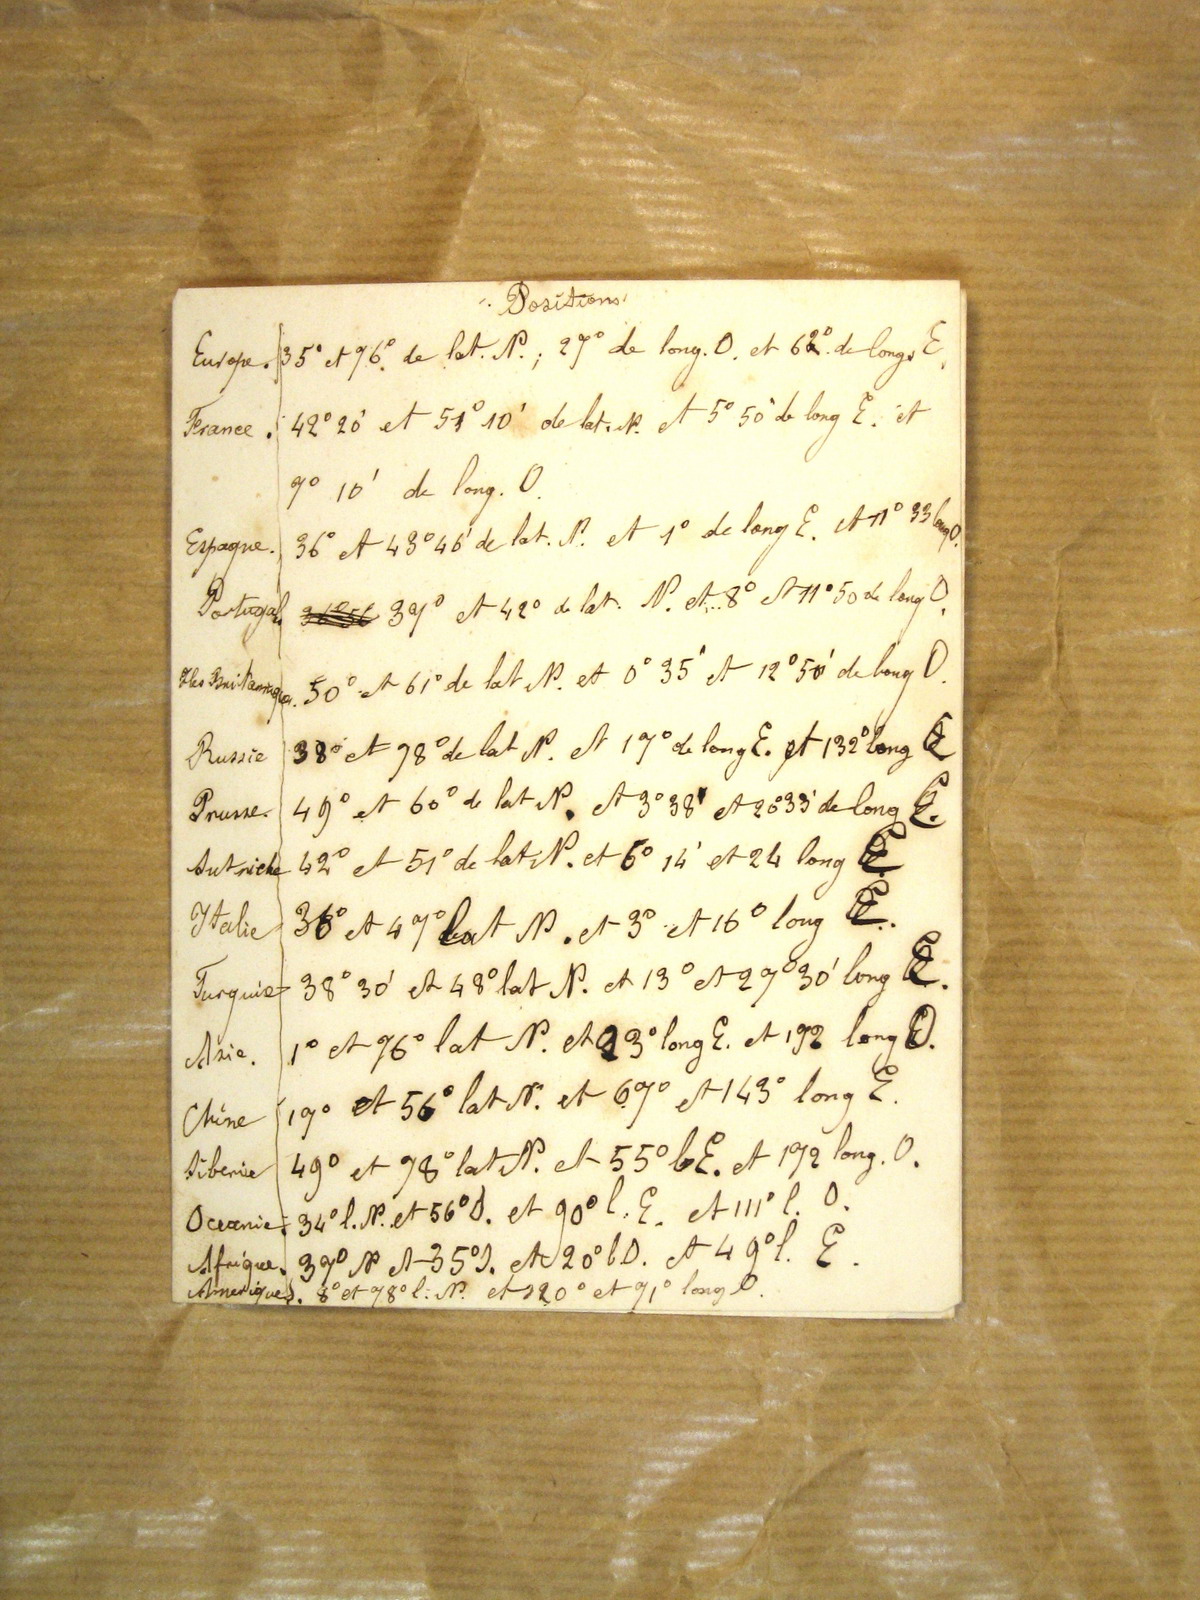 Positions
Europe. 35° et 76° de lat. N. ; 27° de long. O. et 62° de long. E.
France. 42° 20' et 51° 10' de lat. N. et 5° 50' de long E. et
7° 10' de long. O.
Espagne. 36° et 43° 46' de lat. N. et 1° de long E. et 11° 33 long O.
Portugal 37° et 42° de lat. N. et 8° et 11° 50 de long O.
Iles Britanniques. 50° et 61° de lat N. et 0° 35' et 12° 50' de long O.
Russie 38° et 78° de lat N. et 17° de long E. et 132° long E
Prusse. 49° et 60° de lat N. et 3° 38' et 20° 33' de long E.
Autriche 42° et 51° de lat N. et 6° 14' et 24 long E.
Italie 36° et 47° lat N. et 3° et 16° long E.
Turquie 38° 30' et 48° lat N. et 13° et 27° 30' long E.
Asie. 1° et 76° lat N. et 23° long E. et 172 long O.
Chine 17° et 56° lat N. et 67° et 143° long E.
Siberie 49° et 78° lat N. et 55° l E. et 172 long. O.
Oceanie. 34° l. N. et 56° S. et 90° l. E. et 111° l. O.
Afrique. 37° N et 35° S. et 20° l O. et 49° l. E.
Amerique S. 8° et 78° l. N. et 120° et 71° long O.